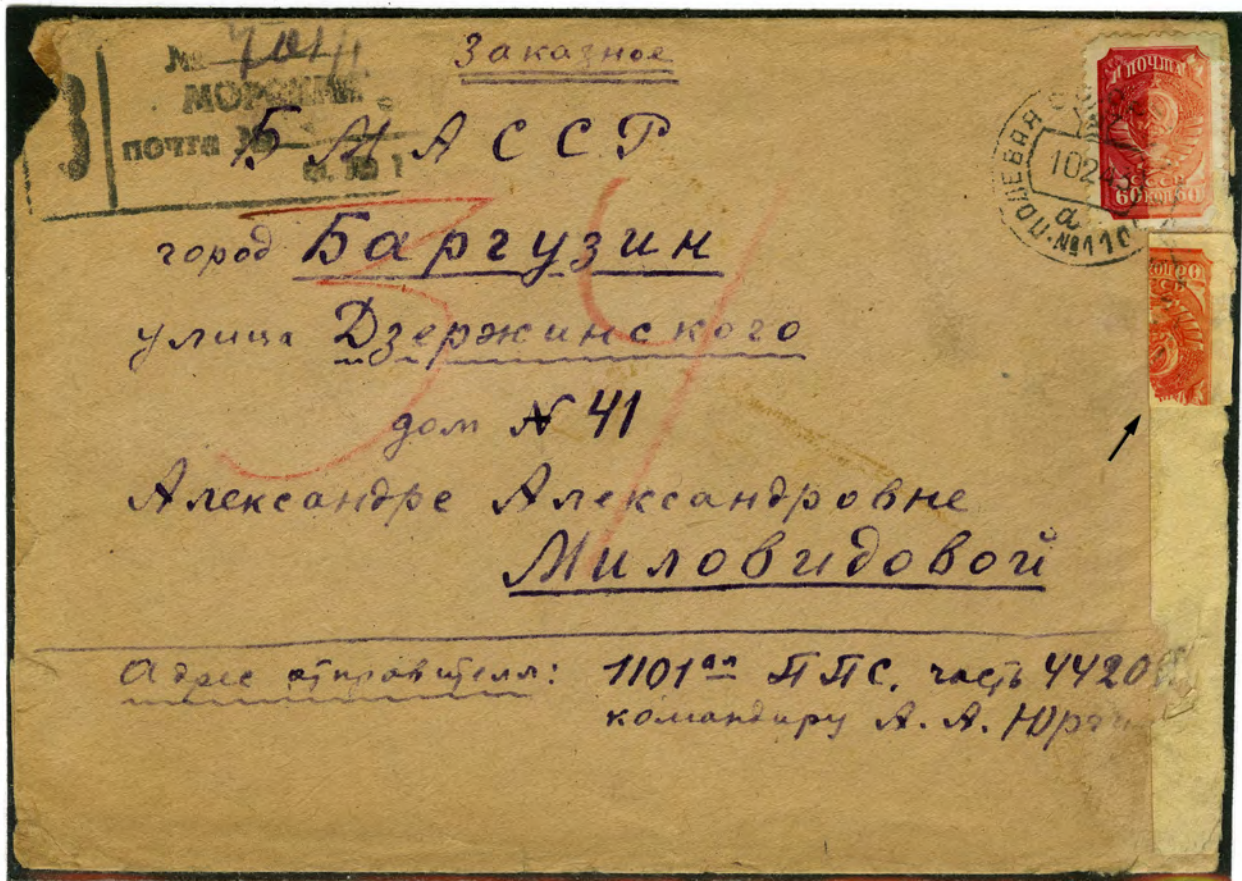 Заказное
З
№ 7014
МОРСКАЯ
ПОЧТА №
БМАССР
34
город Баргузин
улица Дзержинского
дом № 41
Александре Александровне
Миловидовой
Адрес отправителя: 1101ая ППС, часть 4420
командиру А. А.
ПОЧТА
СССР
60 КОП 60
10243
а
№110